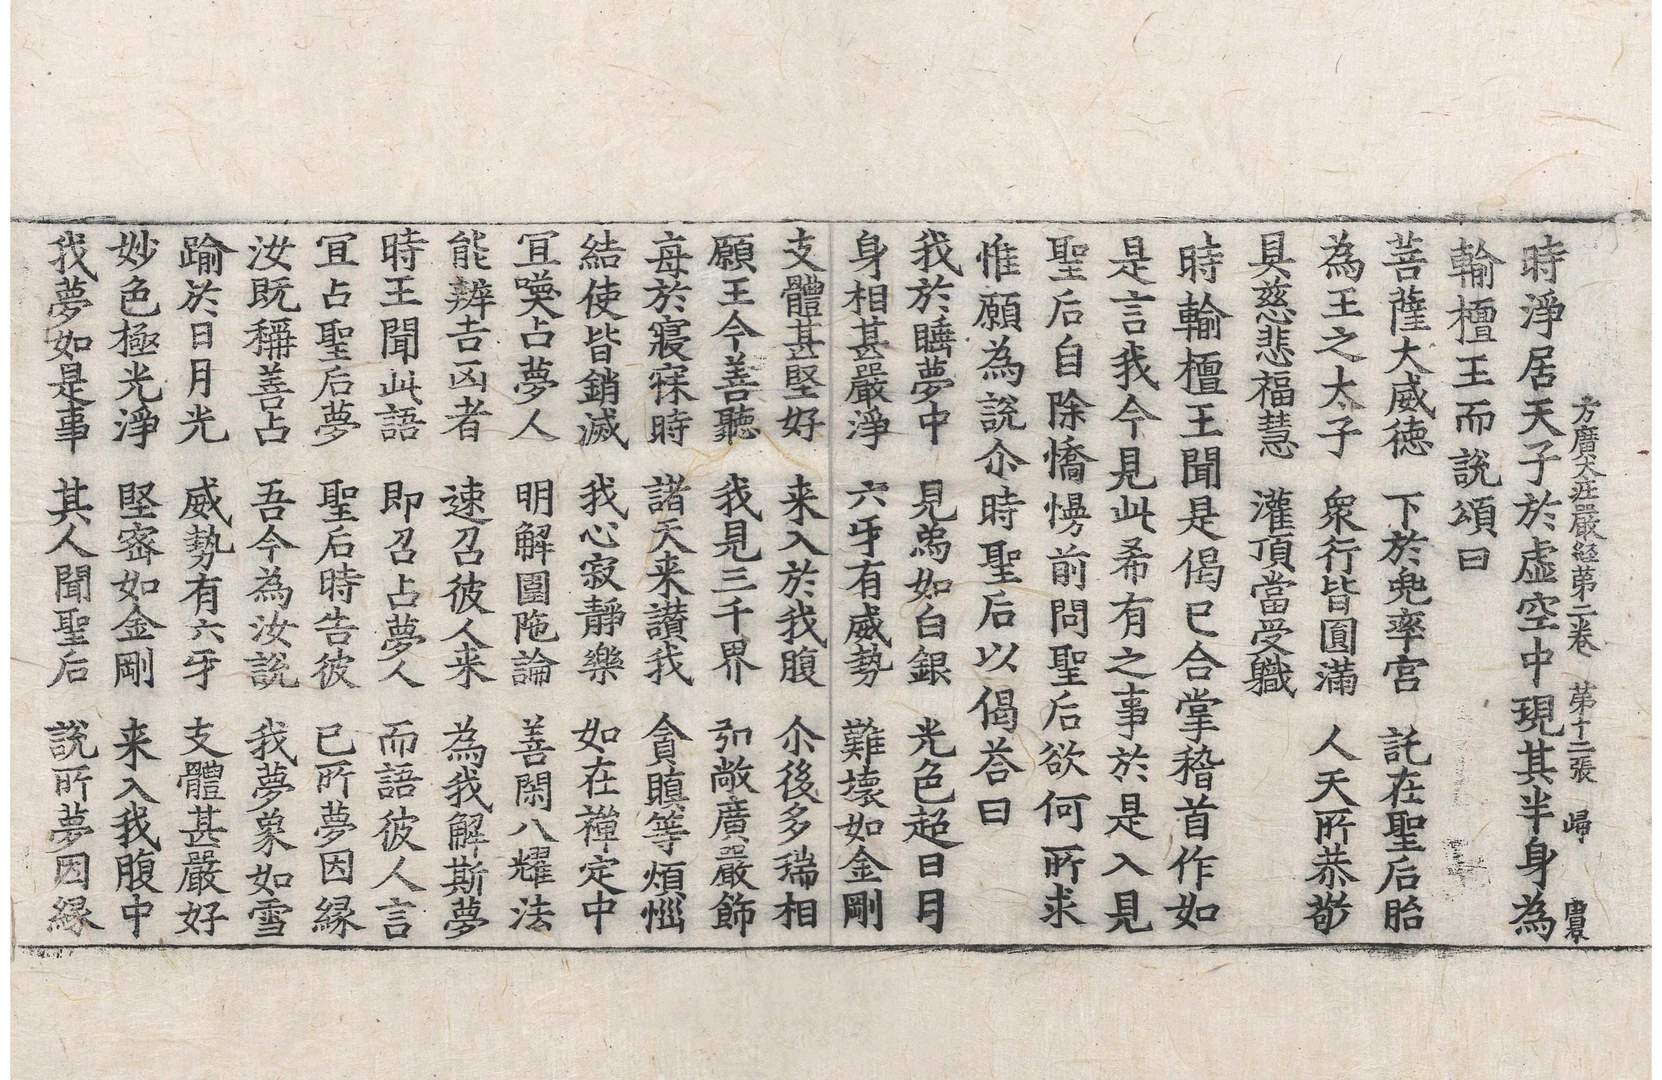 方廣大莊嚴經第二卷 第十二張 歸
時淨居天子於虛空中現其半身為
輸檀王而說頌曰
菩薩大威德 下於兜率宮 託在聖后胎
為王之太子 衆行皆圓滿 人天所恭敬
具慈悲福慧 灌頂當受軄
時輸檀王聞是偈已合掌稽首作如
是言我今見此希有之事於是入見
聖后自除憍慢前問聖后欲何所求
惟願為說尒時聖后以偈荅曰
我於睡夢中 見爲如白銀 光色超日月
身相甚嚴淨 六牙有威勢 難壞如金剛
支體甚堅好 来入於我腹 尒後多瑞相
願王今善聽 我見三千界 弘敞廣嚴飾
每於寢寐時 諸天来讃我 貪瞋等煩惱
結使皆銷滅 我心寂靜樂 如在禪定中
冝喚占夢人 明解圍陁論 善閑八耀法
能辨吉凶者 速召彼人来 為我解斯夢
時王聞此語 即召占夢人 而語彼人言
冝占聖后夢 聖后時告彼 已所夢因緣
汝既稱善占 吾今為汝說 我夢象如雪
踰於日月光 威勢有六牙 支體甚嚴好
妙色極光淨 堅密如金剛 来入我腹中
我夢如是事 其人聞聖后 說所夢因緣